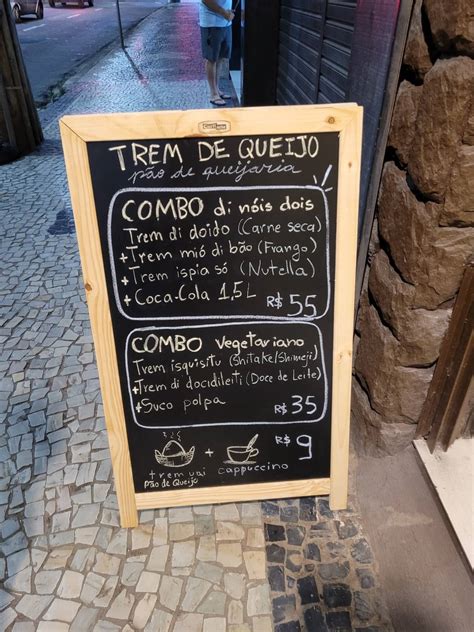 TREM DE QUEIJO
pão de queijaria
COMBO di nóis dois
Trem di doido (Carne seca)
+Trem mió di bão (Frango)
+Trem ispia só (Nutella)
+Coca-Cola 1,5L R$ 55
COMBO vegetariano
Trem isquisitu (Shitake/Shimeji)
+Trem di docidileiti (Doce de Leite)
+Suco polpa R$ 35
+ R$ 9
trem uai cappuccino
Pão de Queijo